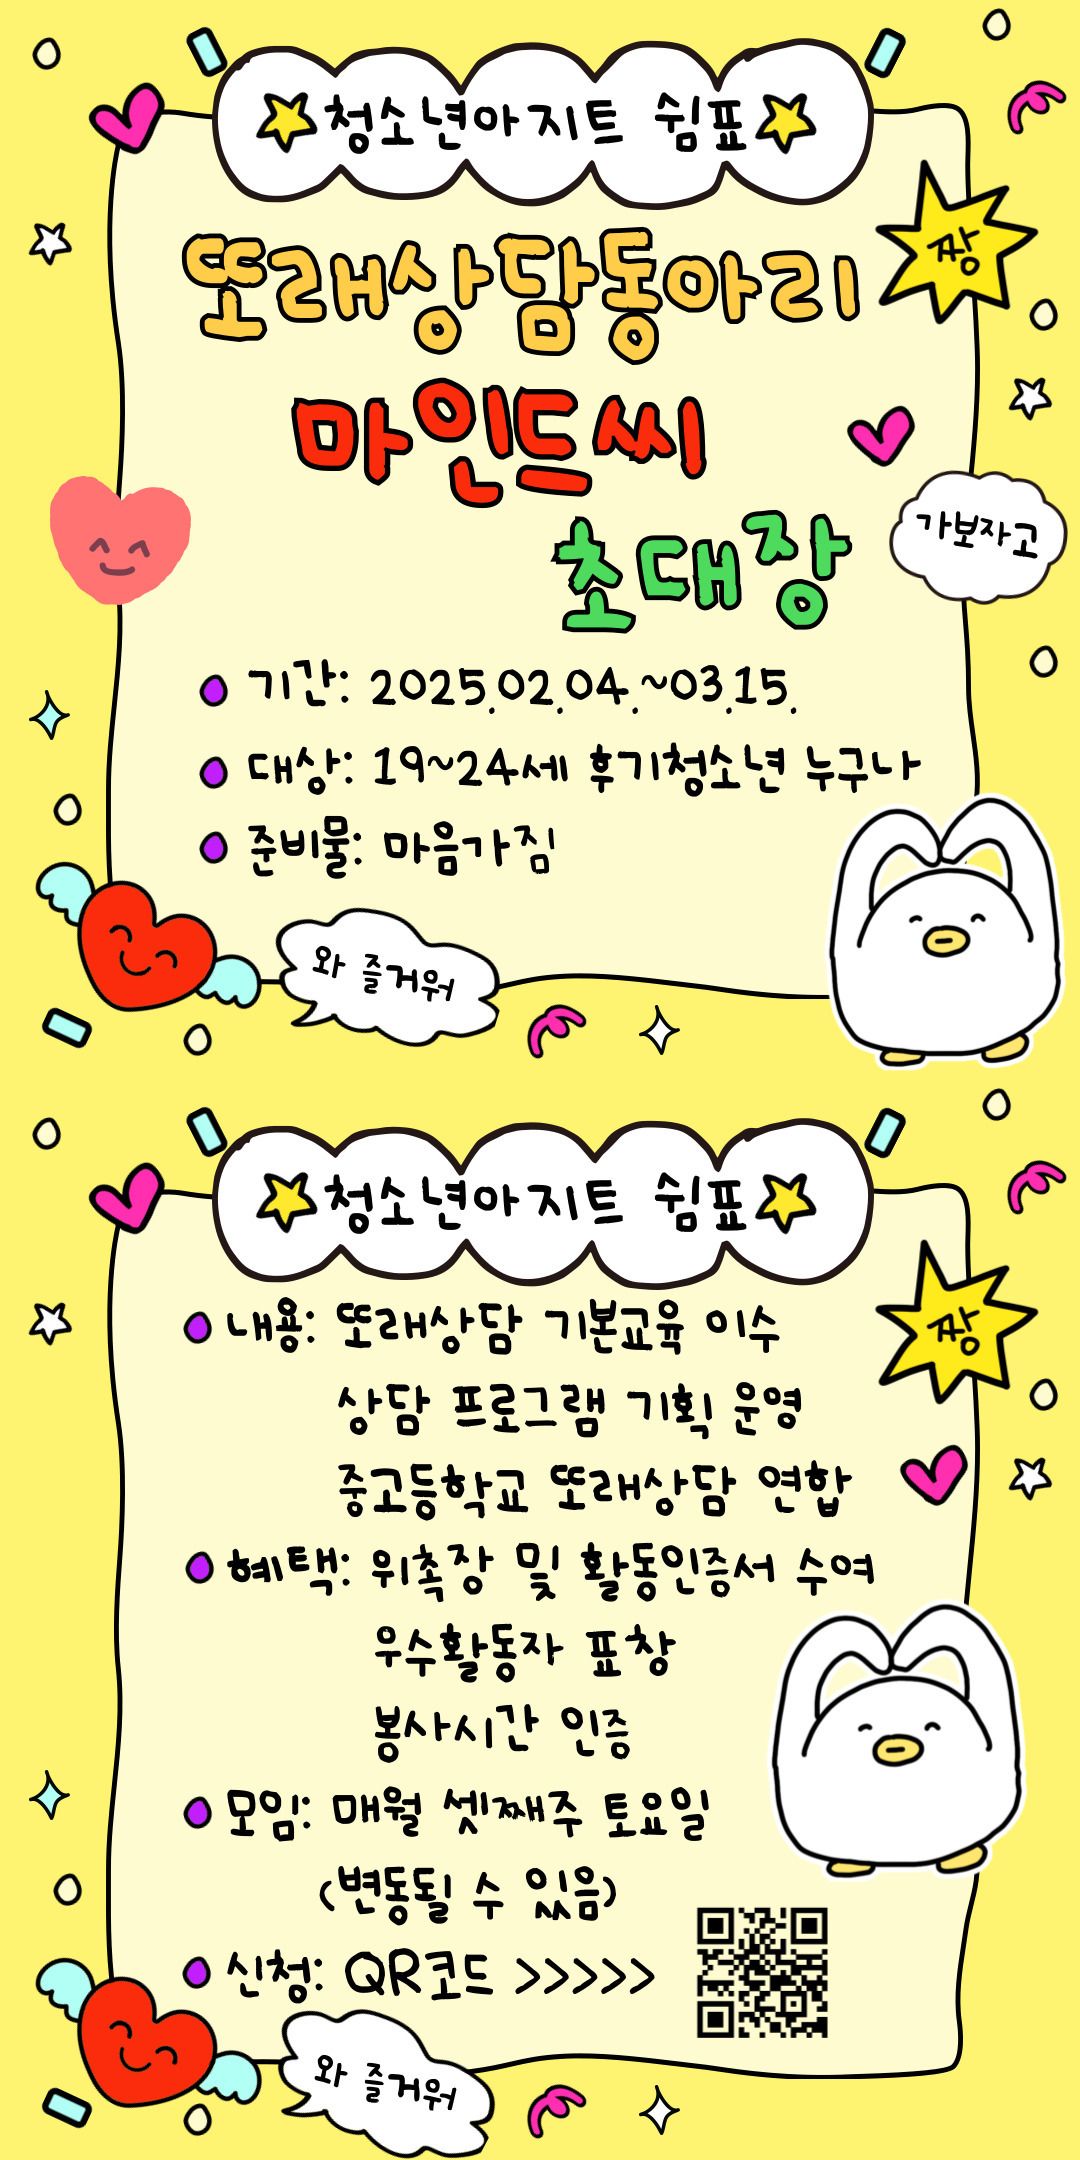 청소년아지트 쉼표
짱
또래상담동아리
마인드씨
초대장
가보자고
기간: 2025.02.04.~03.15.
대상: 19~24세 후기청소년 누구나
준비물: 마음가짐
와 즐거워
청소년아지트 쉼표
짱
내용: 또래상담 기본교육 이수
상담 프로그램 기획 운영
중고등학교 또래상담 연합
혜택: 위촉장 및 활동인증서 수여
우수활동자 표창
봉사시간 인증
모임: 매월 셋째주 토요일
(변동될 수 있음)
신청: QR코드 >>>>>
와 즐거워